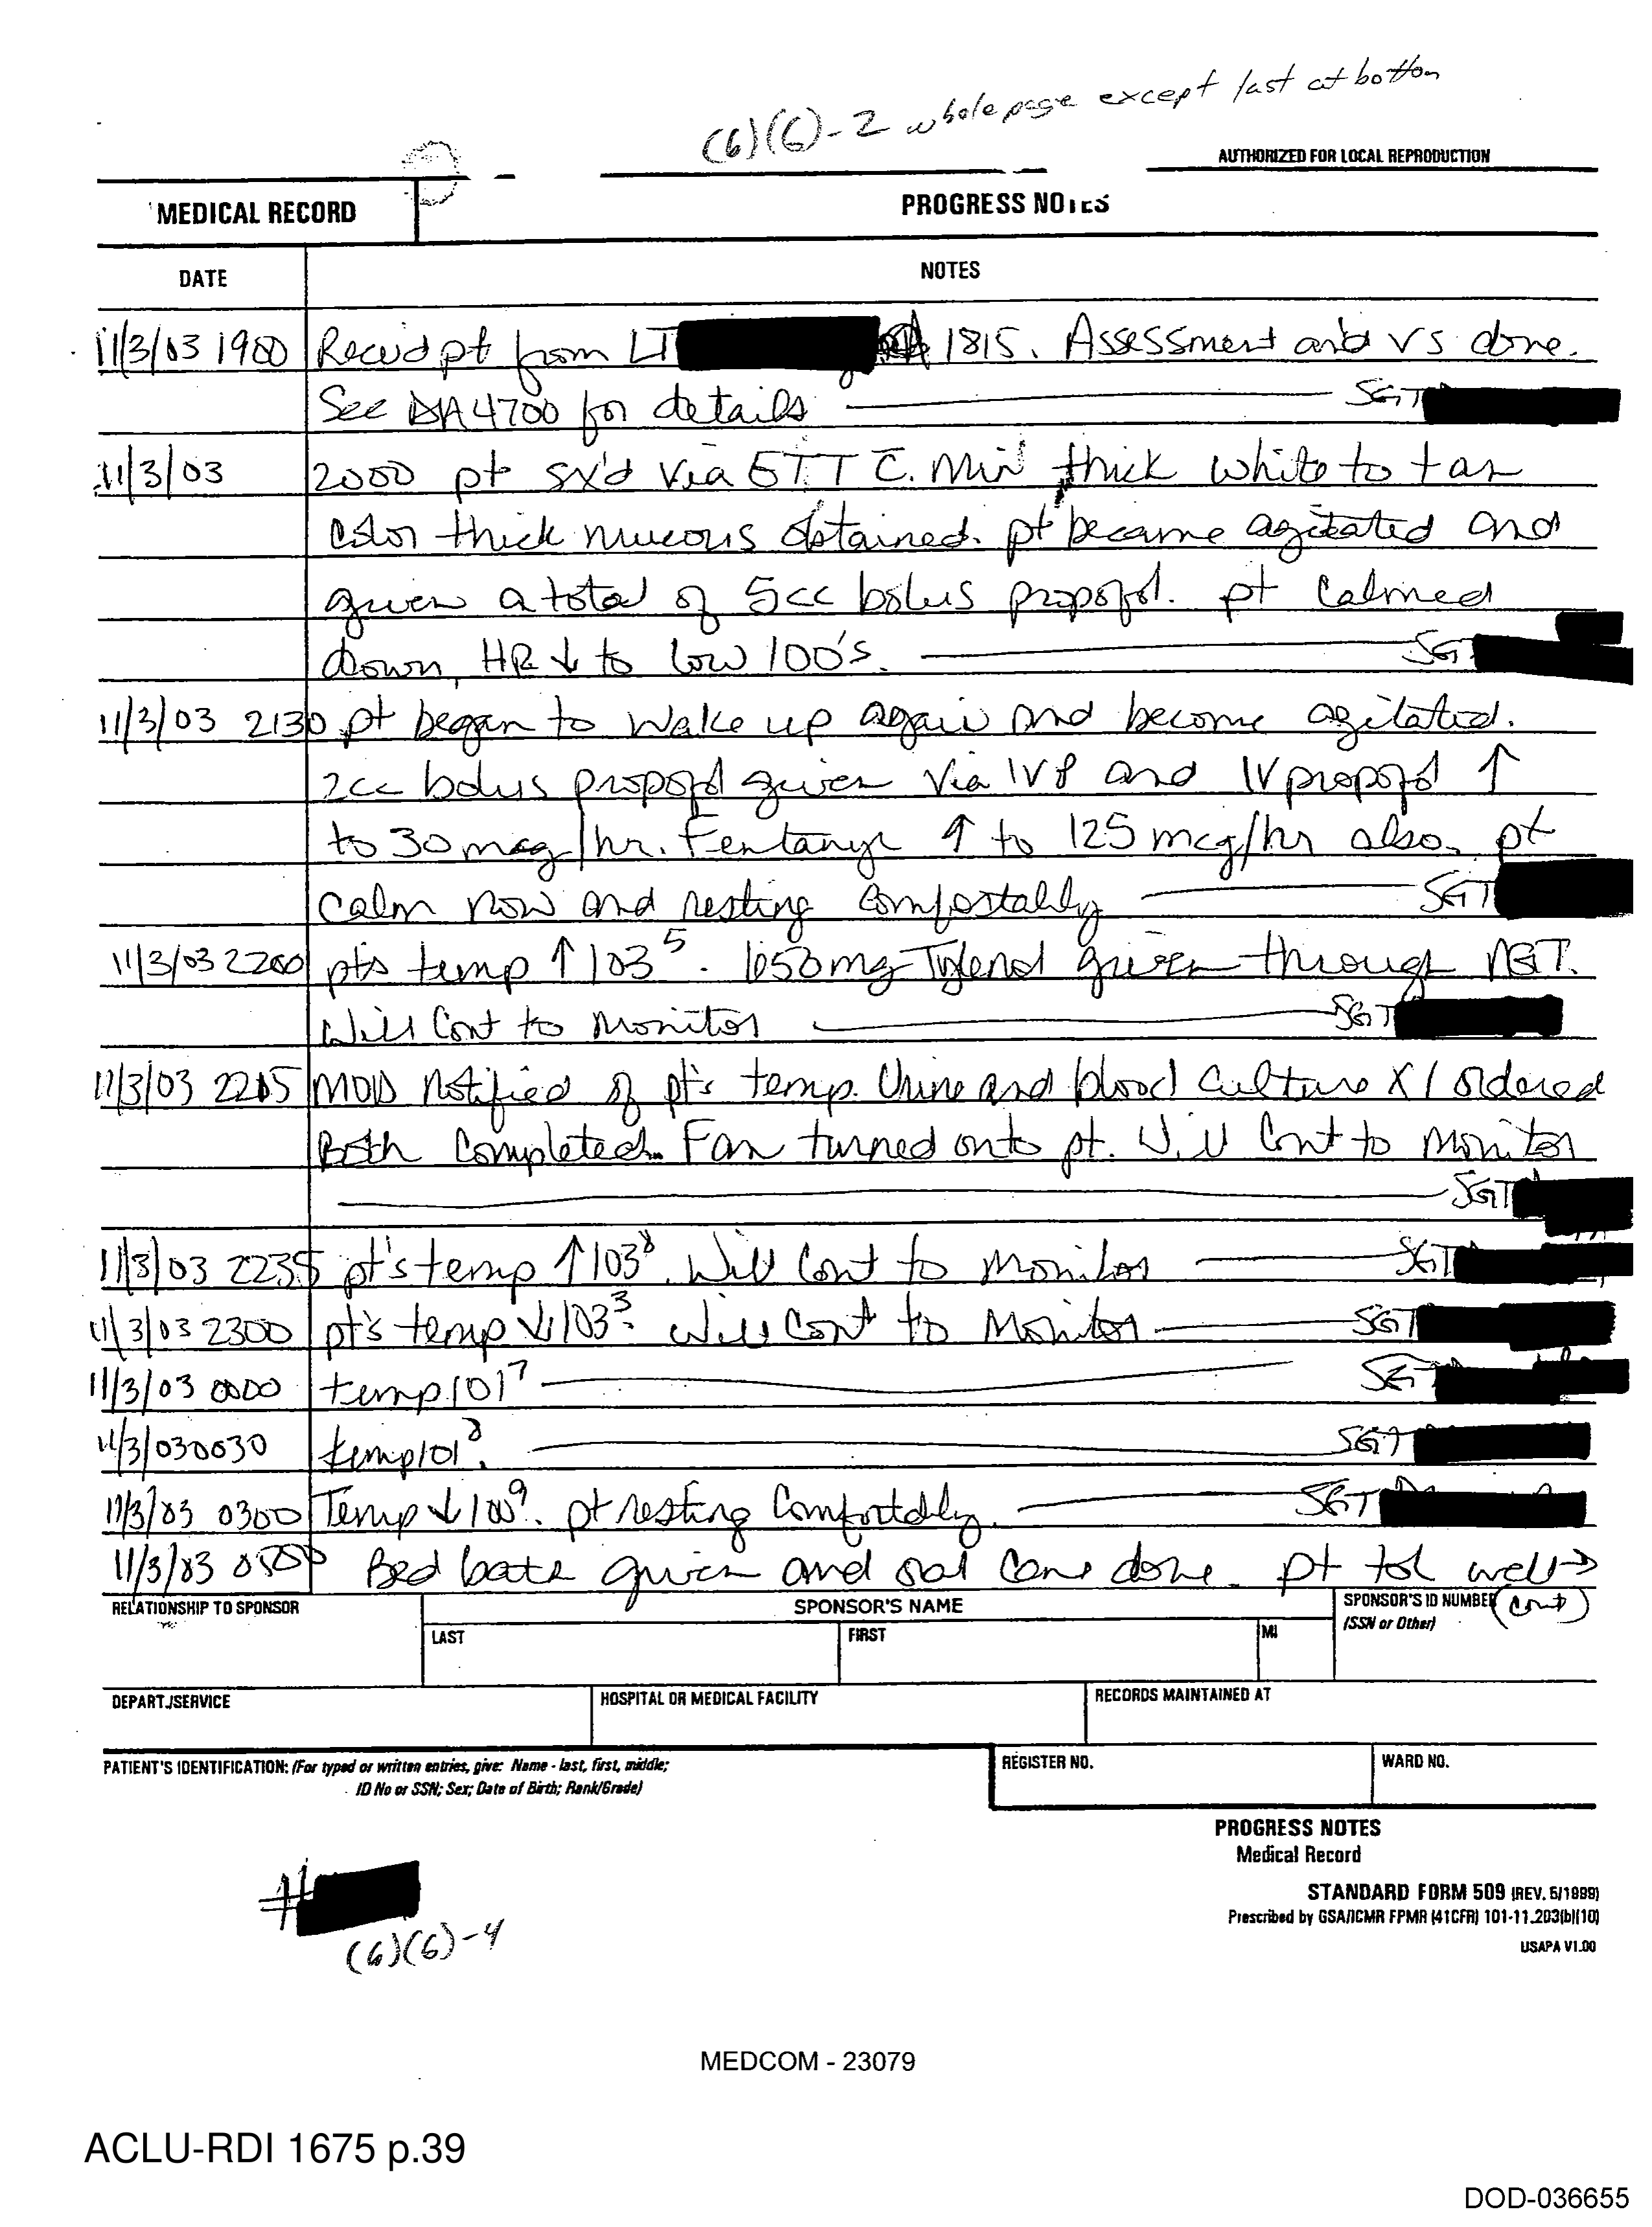 (b)(6)-2 whole page except last at botton
AUTHORIZED FOR LOCAL REPRODUCTION
MEDICAL RECORD
PROGRESS NOTES
DATE
NOTES
11/3/03 1900 Recvd pt from LT 1815. Assessment and VS done.
See DA4700 for details SGT
11/3/03 2000 pt sx'd via ETT c. Min thick white to tan
color thick mucous obtained. pt became agitated and
given a total of 5cc bolus propofol. pt calmed
down, HR ↓ to low 100's. SGT
11/3/03 2130 pt began to wake up again and become agitated.
2cc bolus propofol given via IVP and IV propofol ↑
to 30 mcg/hr. Fentanyl ↑ to 125 mcg/hr also. pt
calm now and resting comfortably SGT
11/3/03 2200 pts temp ↑ 103⁵. 650mg Tylenol given through NGT.
Will Cont to monitor SGT
11/3/03 2215 MOD notified of pt's temp. Urine and blood culture X1 ordered
Both completed. Fan turned onto pt. Will Cont to monitor
SGT
11/3/03 2235 pt's temp ↑ 103⁸. Will Cont to monitor SGT
11/3/03 2300 pt's temp ↓ 103³. Will Cont to monitor SGT
11/3/03 0000 temp 101⁷ SGT
11/3/03 0030 temp 101⁸. SGT
11/3/03 0300 Temp ↓ 100⁹. pt resting comfortably. SGT
11/3/03 0500 Bed bath given and oral care done. pt tol well →
(cont)
RELATIONSHIP TO SPONSOR
SPONSOR'S NAME
SPONSOR'S ID NUMBER
(SSN or Other)
LAST
FIRST
MI
DEPART./SERVICE
HOSPITAL OR MEDICAL FACILITY
RECORDS MAINTAINED AT
PATIENT'S IDENTIFICATION: (For typed or written entries, give: Name - last, first, middle;
ID No or SSN; Sex; Date of Birth; Rank/Grade)
REGISTER NO.
WARD NO.
PROGRESS NOTES
Medical Record
STANDARD FORM 509 (REV. 5/1999)
Prescribed by GSA/ICMR FPMR (41CFR) 101-11.203(b)(10)
USAPA V1.00
#
(b)(6)-4
MEDCOM - 23079
ACLU-RDI 1675 p.39
DOD-036655